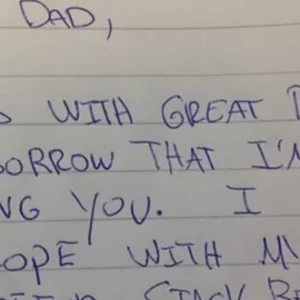 DAD,
WITH GREAT
SORROW THAT I'M
NG YOU. I
OPE WITH MY
STACK